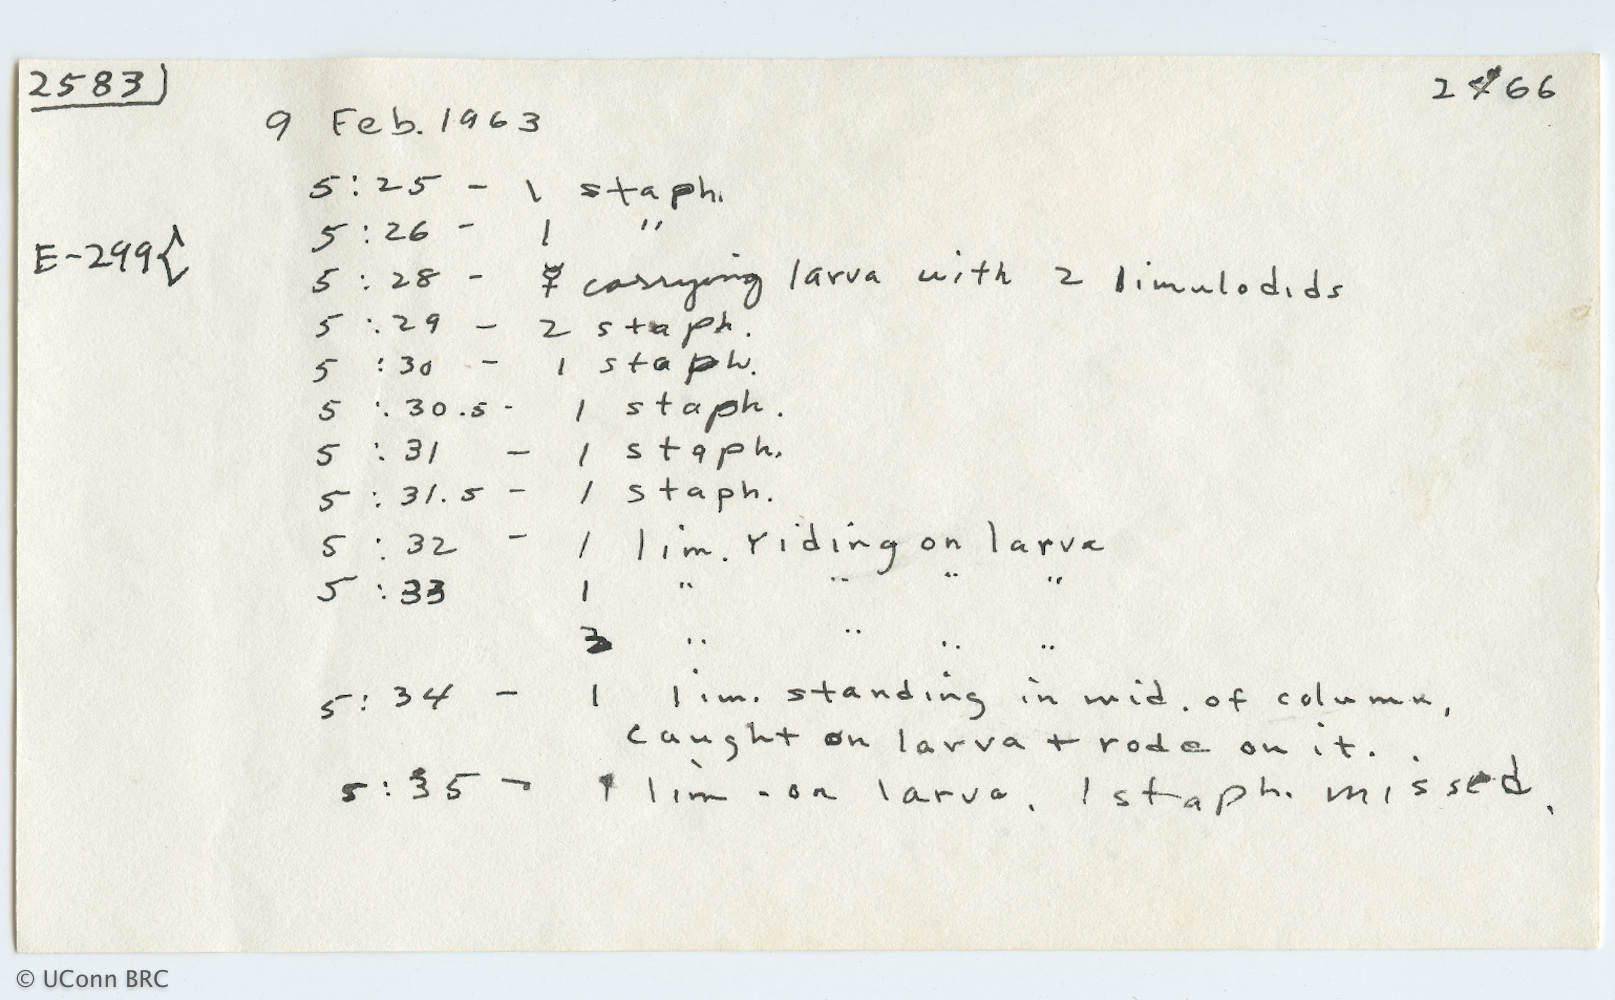 2583
2466
9 Feb. 1963
5:25 - 1 staph.
5:26 - 1 "
E-299{
5:28 - ☿ carrying larva with 2 limulodids
5:29 - 2 staph.
5:30 - 1 staph.
5:30.5 - 1 staph.
5:31 - 1 staph.
5:31.5 - 1 staph.
5:32 - 1 lim. riding on larva
5:33 1 " " " "
3 " " " "
5:34 - 1 lim. standing in mid. of column,
caught on larva + rode on it.
5:35 - 1 lim - on larva. 1 staph. missed.
© UConn BRC